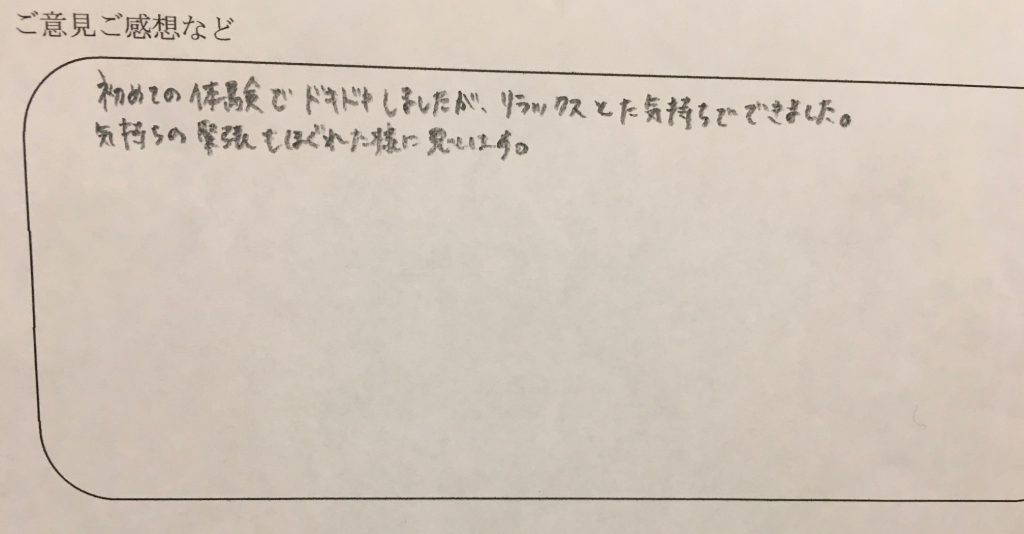 ご意見ご感想など
初めての体験でドキドキしましたが、リラックスとた気持ちでできました。
気持ちの緊張もほぐれた様に思います。